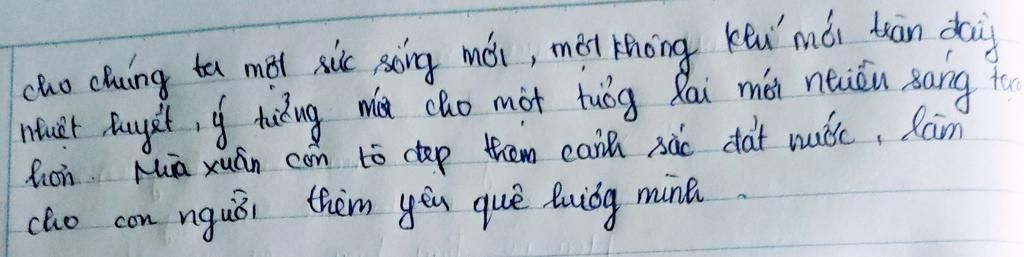 cho chúng ta một sức sống mới, một không khí mới tràn đầy
nhiệt huyết, ý tưởng mới cho một tươg lai mới nhiều sáng tạo
hơn. Mùa xuân còn tô đẹp thêm cảnh sắc đất nước, làm
cho con người thêm yêu quê hươg mình.